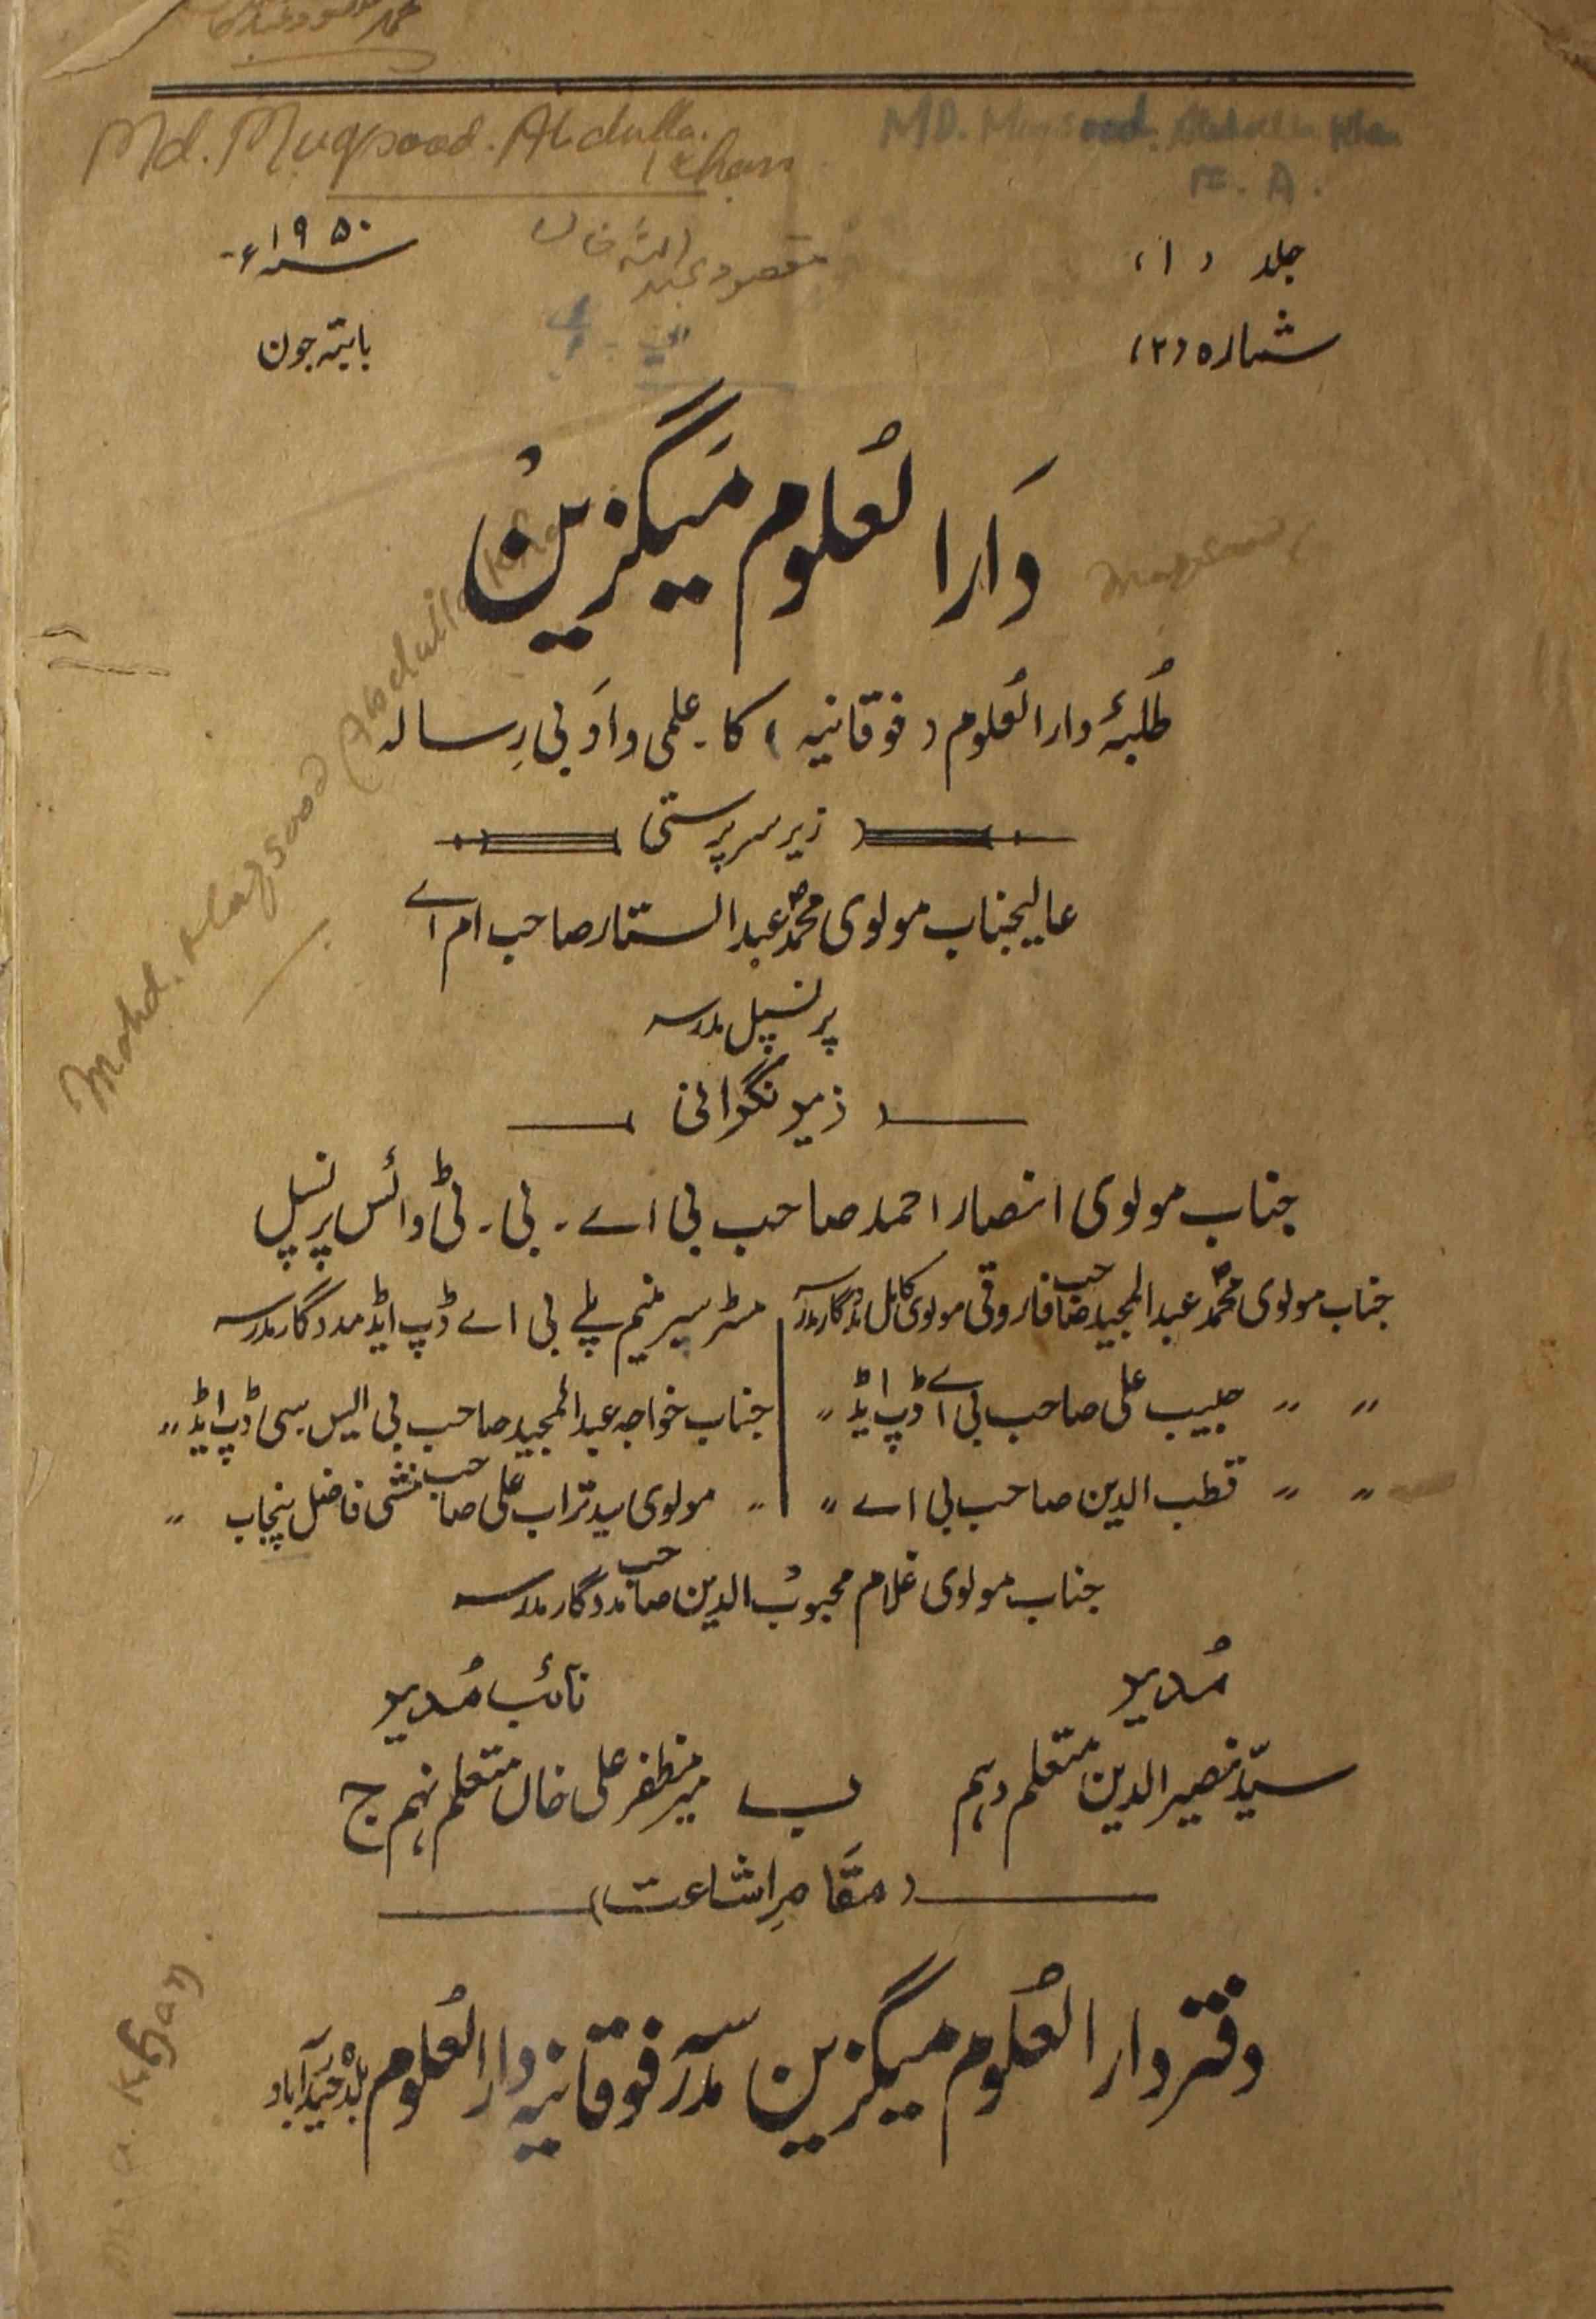 Md. Muqsood. Abdulla. Khan
MD. Muqsood. Abdulla Khan
جلد (۱)
سنہ ۱۹۵۰ء
مقصود عبد اللہ خاں
شمارہ (۲)
بابتہ جون
دَارالعُلوم مَیگزین
Maqsood
طلبۂ دارالعُلوم (فوقانیہ) کا ۔ علمی و اَدبی رِسالہ
زیر سرپرستی
عالیجناب مولوی محمدؐ عبدالستار صاحب ام اے
پرنسپل مدرسہ
زیر نگرانی
جناب مولوی انصار احمد صاحب بی اے ۔ بی ۔ ٹی وائس پرنسپل
جناب مولوی محمدؐ عبدالمجید صاحب فاروقی مولوی کامل مددگار مدرسہ
〃 〃 حبیب علی صاحب بی اے ڈپ ایڈ 〃
〃 〃 قطب الدین صاحب بی اے 〃
مسٹر پلے بی اے ڈپ ایڈ مددگار مدرسہ
جناب خواجہ عبدالمجید صاحب بی ایس سی ڈپ ایڈ 〃
〃 مولوی سید تراب علی صاحب منشی فاضل پنجاب 〃
جناب مولوی غلام محبوب الدین صاحب مددگار مدرسہ
مُدیر
نائب مُدیر
سیّد نصیر الدین متعلم دہم ب
میر مظفر علی خاں متعلم نہم ج
(مقَامِ اشاعت)
دفتر دارالعُلوم میگزین مدرسہ فوقانیہ دارالعُلوم بلدہ حیدرآباد
Mohd. Maqsood Abdulla Kha
M. a. Khan